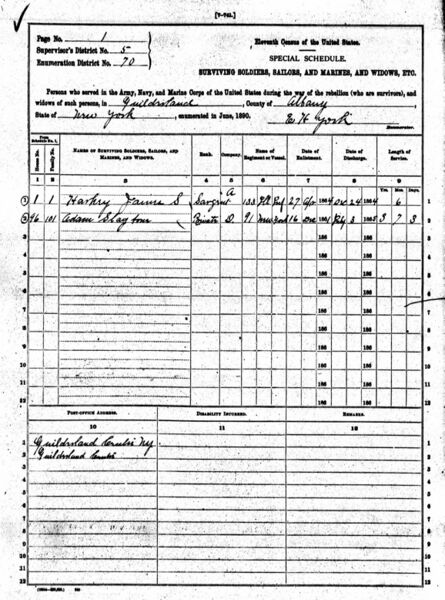 [7-762.]
Page No. 1
Supervisor's District No. 5
Enumeration District No. 70
Eleventh Census of the United States.
SPECIAL SCHEDULE.
SURVIVING SOLDIERS, SAILORS, AND MARINES, AND WIDOWS, ETC.
Persons who served in the Army, Navy, and Marine Corps of the United States during the war of the rebellion (who are survivors), and
widows of such persons, in Guilderland, County of Albany,
State of New York, enumerated in June, 1890. E H York
Enumerator.
From Schedule No. 1.
House No. Family No. NAMES OF SURVIVING SOLDIERS, SAILORS, AND MARINES, AND WIDOWS. Rank. Company. Name of Regiment or Vessel. Date of Enlistment. Date of Discharge. Length of Service.
Yrs. Mos. Days.
1 2 3 4 5 6 7 8 9
1 1 1 S Sargent A 133 27 Apr 1864 24 1864 6
2 96 101 Adam Private D 91 New York 16 Dec 1861 July 3 1865 3 7 3
3 186 186
4 186 186
5 186 186
6 186 186
7 186 186
8 186 186
9 186 186
10 186 186
11 186 186
12 186 186
POST-OFFICE ADDRESS. DISABILITY INCURRED. REMARKS.
10 11 12
1 Guilderland Center NY 1
2 Guilderland Center 2
3 3
4 4
5 5
6 6
7 7
8 8
9 9
10 10
11 11
12 12